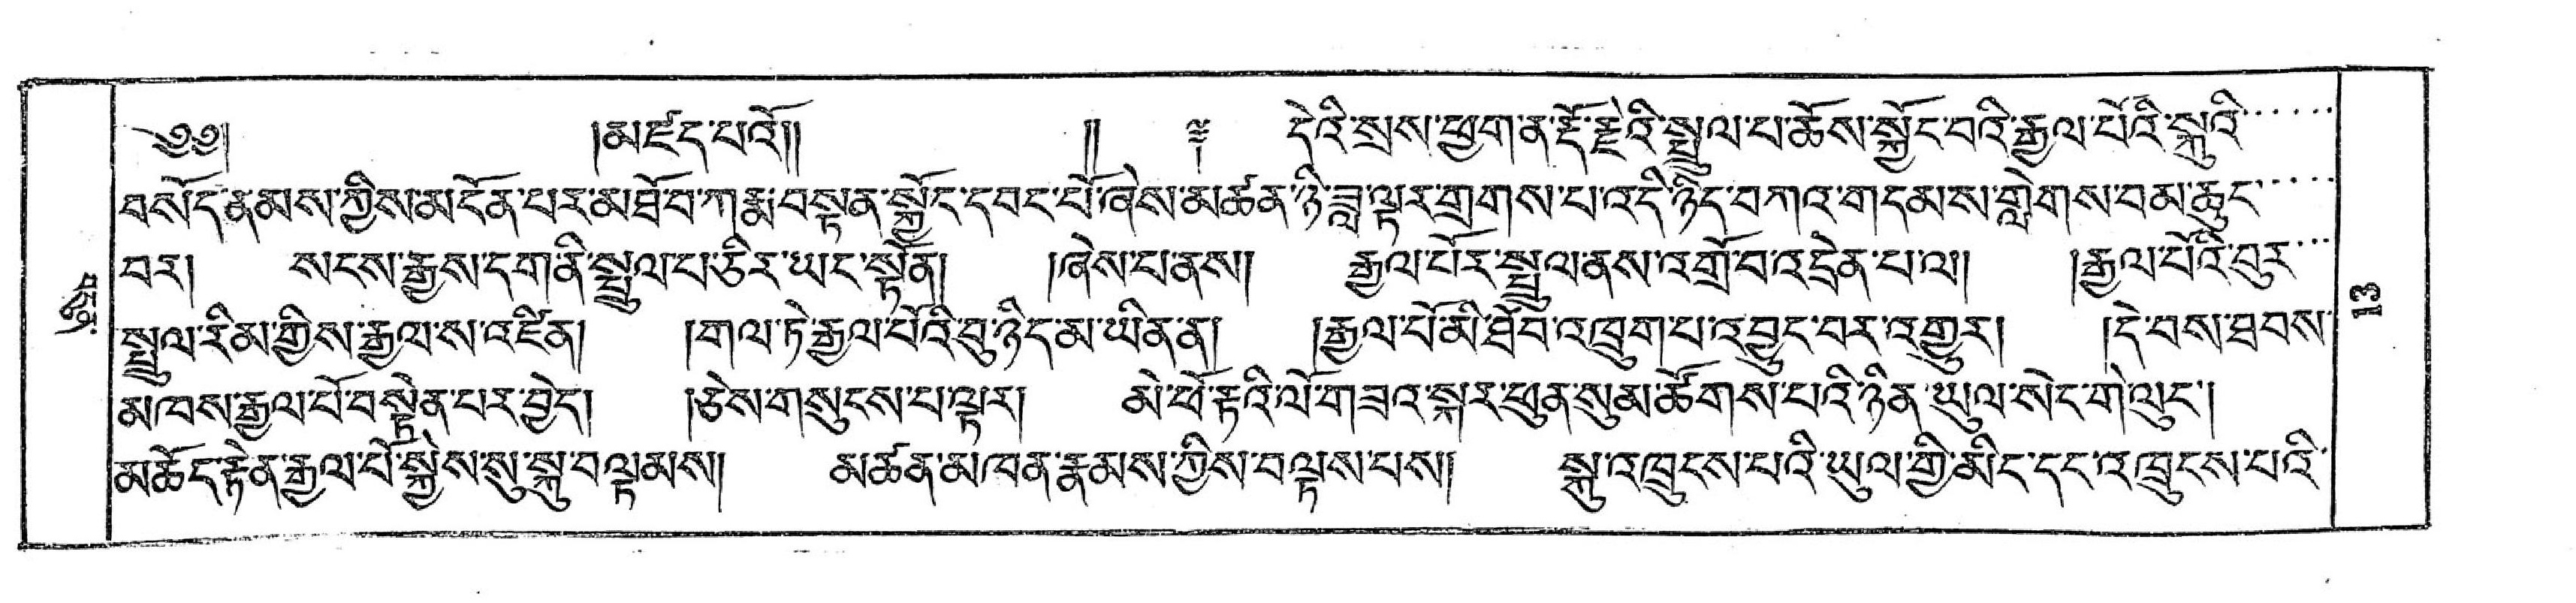 ༄༅། །མཛད་པའོ།། །། ༈ དེའི་སྲས་ཕྱག་ན་རྡོ་རྗེའི་སྤྲུལ་པ་ཆོས་སྐྱོང་བའི་རྒྱལ་པོའི་སྐུའི་.....
བསོད་ནམས་ཀྱིས་མངོན་པར་མཐོབ་ཀརྨ་བསྟན་སྐྱོང་དབང་པོ་ཞེས་མཚན་ཉི་ཟླ་ལྟར་གྲགས་པ་འདི་ཉིད་བཀའ་གདམས་གླེགས་བམ་ཆུང་.....
བར། སངས་རྒྱས་དགནི་སྤྲུལ་པ་ཅིར་ཡང་སྟོན། །ཞེས་པ་ནས། རྒྱལ་པོར་སྤྲུལ་ནས་འགྲོ་བ་འདྲེན་པ་ལ། །རྒྱལ་པོའི་བུར་...
སྤྲུལ་རིམ་གྱིས་རྒྱལ་ས་འཛིན། །གལ་ཏེ་རྒྱལ་པོའི་བུ་ཉིད་མ་ཡིན་ན། །རྒྱལ་པོ་མི་ཐོབ་འཁྲུག་པ་འབྱུང་བར་འགྱུར། །དེ་བས་ཐབས་
མཁས་རྒྱལ་པོ་བསྟེན་པར་བྱེད། །ཅེས་གསུངས་པ་ལྟར། མེ་ཕོ་རྟའི་ལོ་གཟའ་སྐར་ཕུན་སུམ་ཚོགས་པའི་ཉིན་ཡུལ་སེང་གེ་ལུང་།
མཆོད་རྟེན་རྒྱལ་པོ་སྐྱེས་སུ་སྐུ་བལྟམས། མཚན་མཁན་རྣམས་ཀྱིས་བལྟས་པས། སྐུ་འཁྲུངས་པའི་ཡུལ་གྱི་མིང་དང་འཁྲུངས་པའི་
13